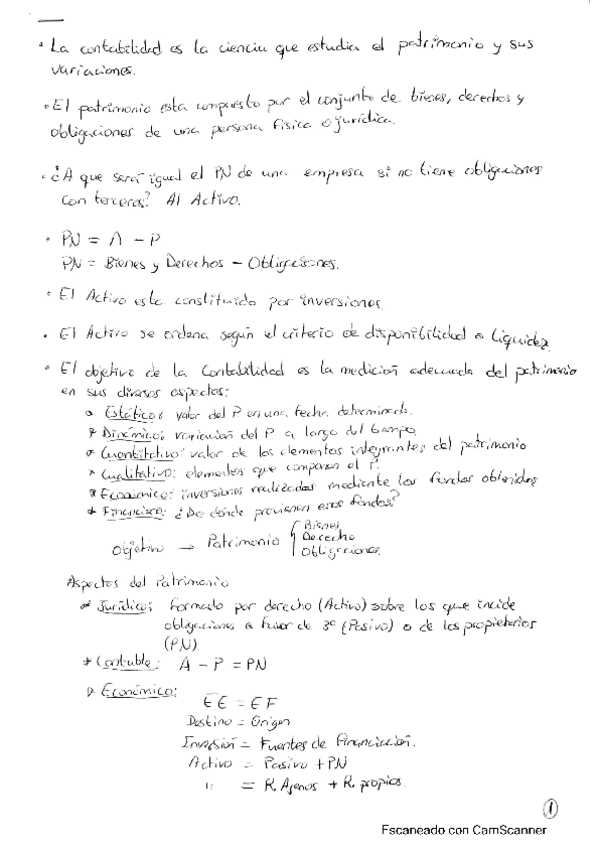 • La contabilidad es la ciencia que estudia el patrimonio y sus
variaciones.
• El patrimonio esta compuesto por el conjunto de bienes, derechos y
obligaciones de una persona física o jurídica.
• ¿A que será igual el PN de una empresa si no tiene obligaciones
con terceros? Al Activo.
• PN = A - P
PN = Bienes y Derechos - Obligaciones.
• El Activo esta constituido por inversiones.
• El Activo se ordena según el criterio de disponibilidad o liquidez
• El objetivo de la Contabilidad es la medición adecuada del patrimonio
en sus diversos aspectos:
Estático: valor del P en una fecha determinada.
Dinámico: variación del P a largo del tiempo
Cuantitativo: valor de los elementos integrantes del patrimonio
Cualitativo: elementos que componen el P.
Económico: inversiones realizadas mediante los fondos obtenidos
Financiero: ¿De dónde provienen esos fondos?
Objetivo → Patrimonio { Bienes
Derecho
Obligaciones
Aspectos del Patrimonio
Jurídico: Formado por derecho (Activo) sobre los que incide
obligaciones a favor de 3º (Pasivo) o de los propietarios
(PN)
Contable: A - P = PN
Económico:
EE = EF
Destino = Origen
Inversión = Fuentes de Financiación.
Activo = Pasivo + PN
" = R. Ajenos + R. propios.
1
Escaneado con CamScanner